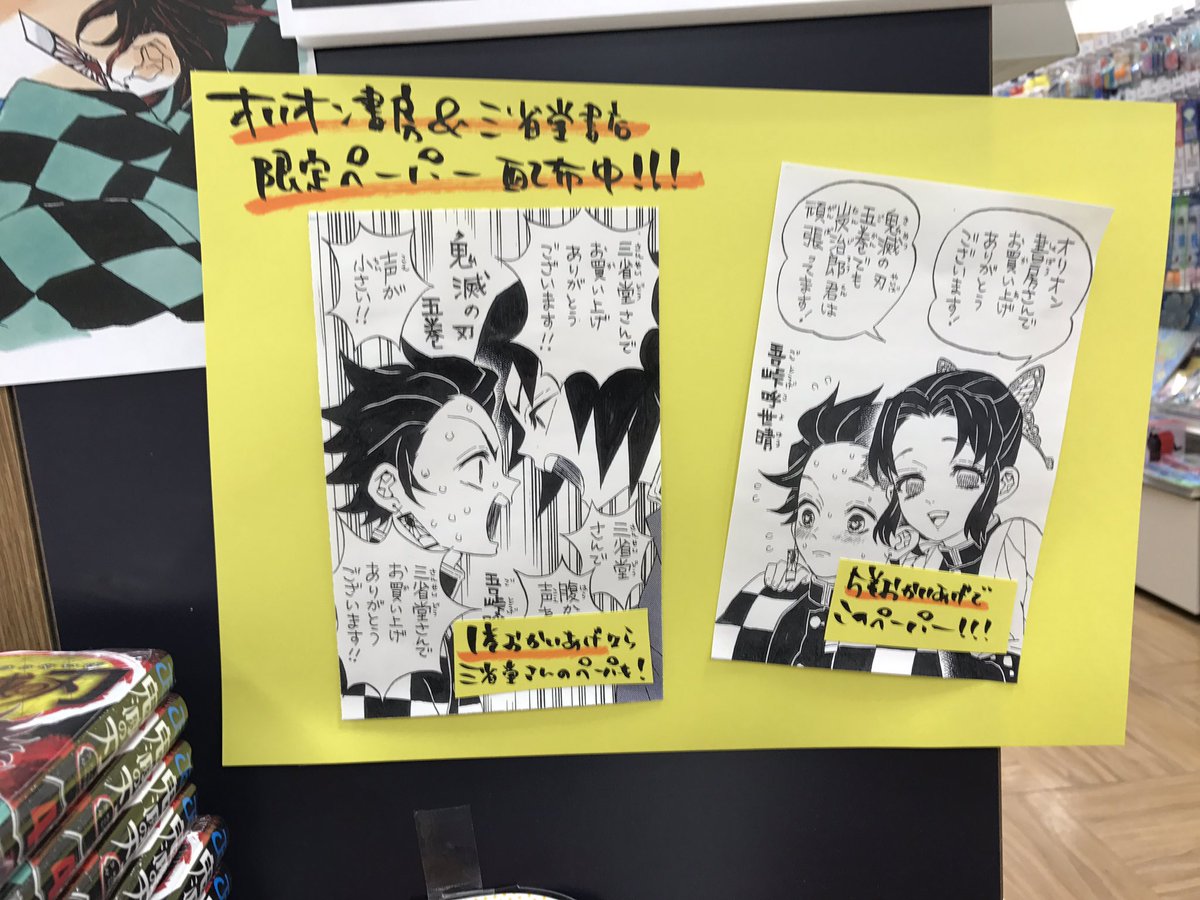 オリオン書房&三省堂書店
限定ペーパー配布中!!!
三省堂さんで
お買い上げ
ありがとう
ございます!!
鬼滅の刃
五巻
声が
小さい!!
三省堂
さんで
腹か
声を
三省堂さんで
お買い上げ
ありがとう
ございます!!
吾峠
1巻おかいあげなら
三省堂さんのペーパーも!
オリオン
書房さんで
お買い上げ
ありがとう
ございます!
鬼滅の刃
五巻でも
炭治郎君は
頑張ってます!
吾峠呼世晴
5巻おかいあげで
このペーパー!!!
鬼滅の刃
4